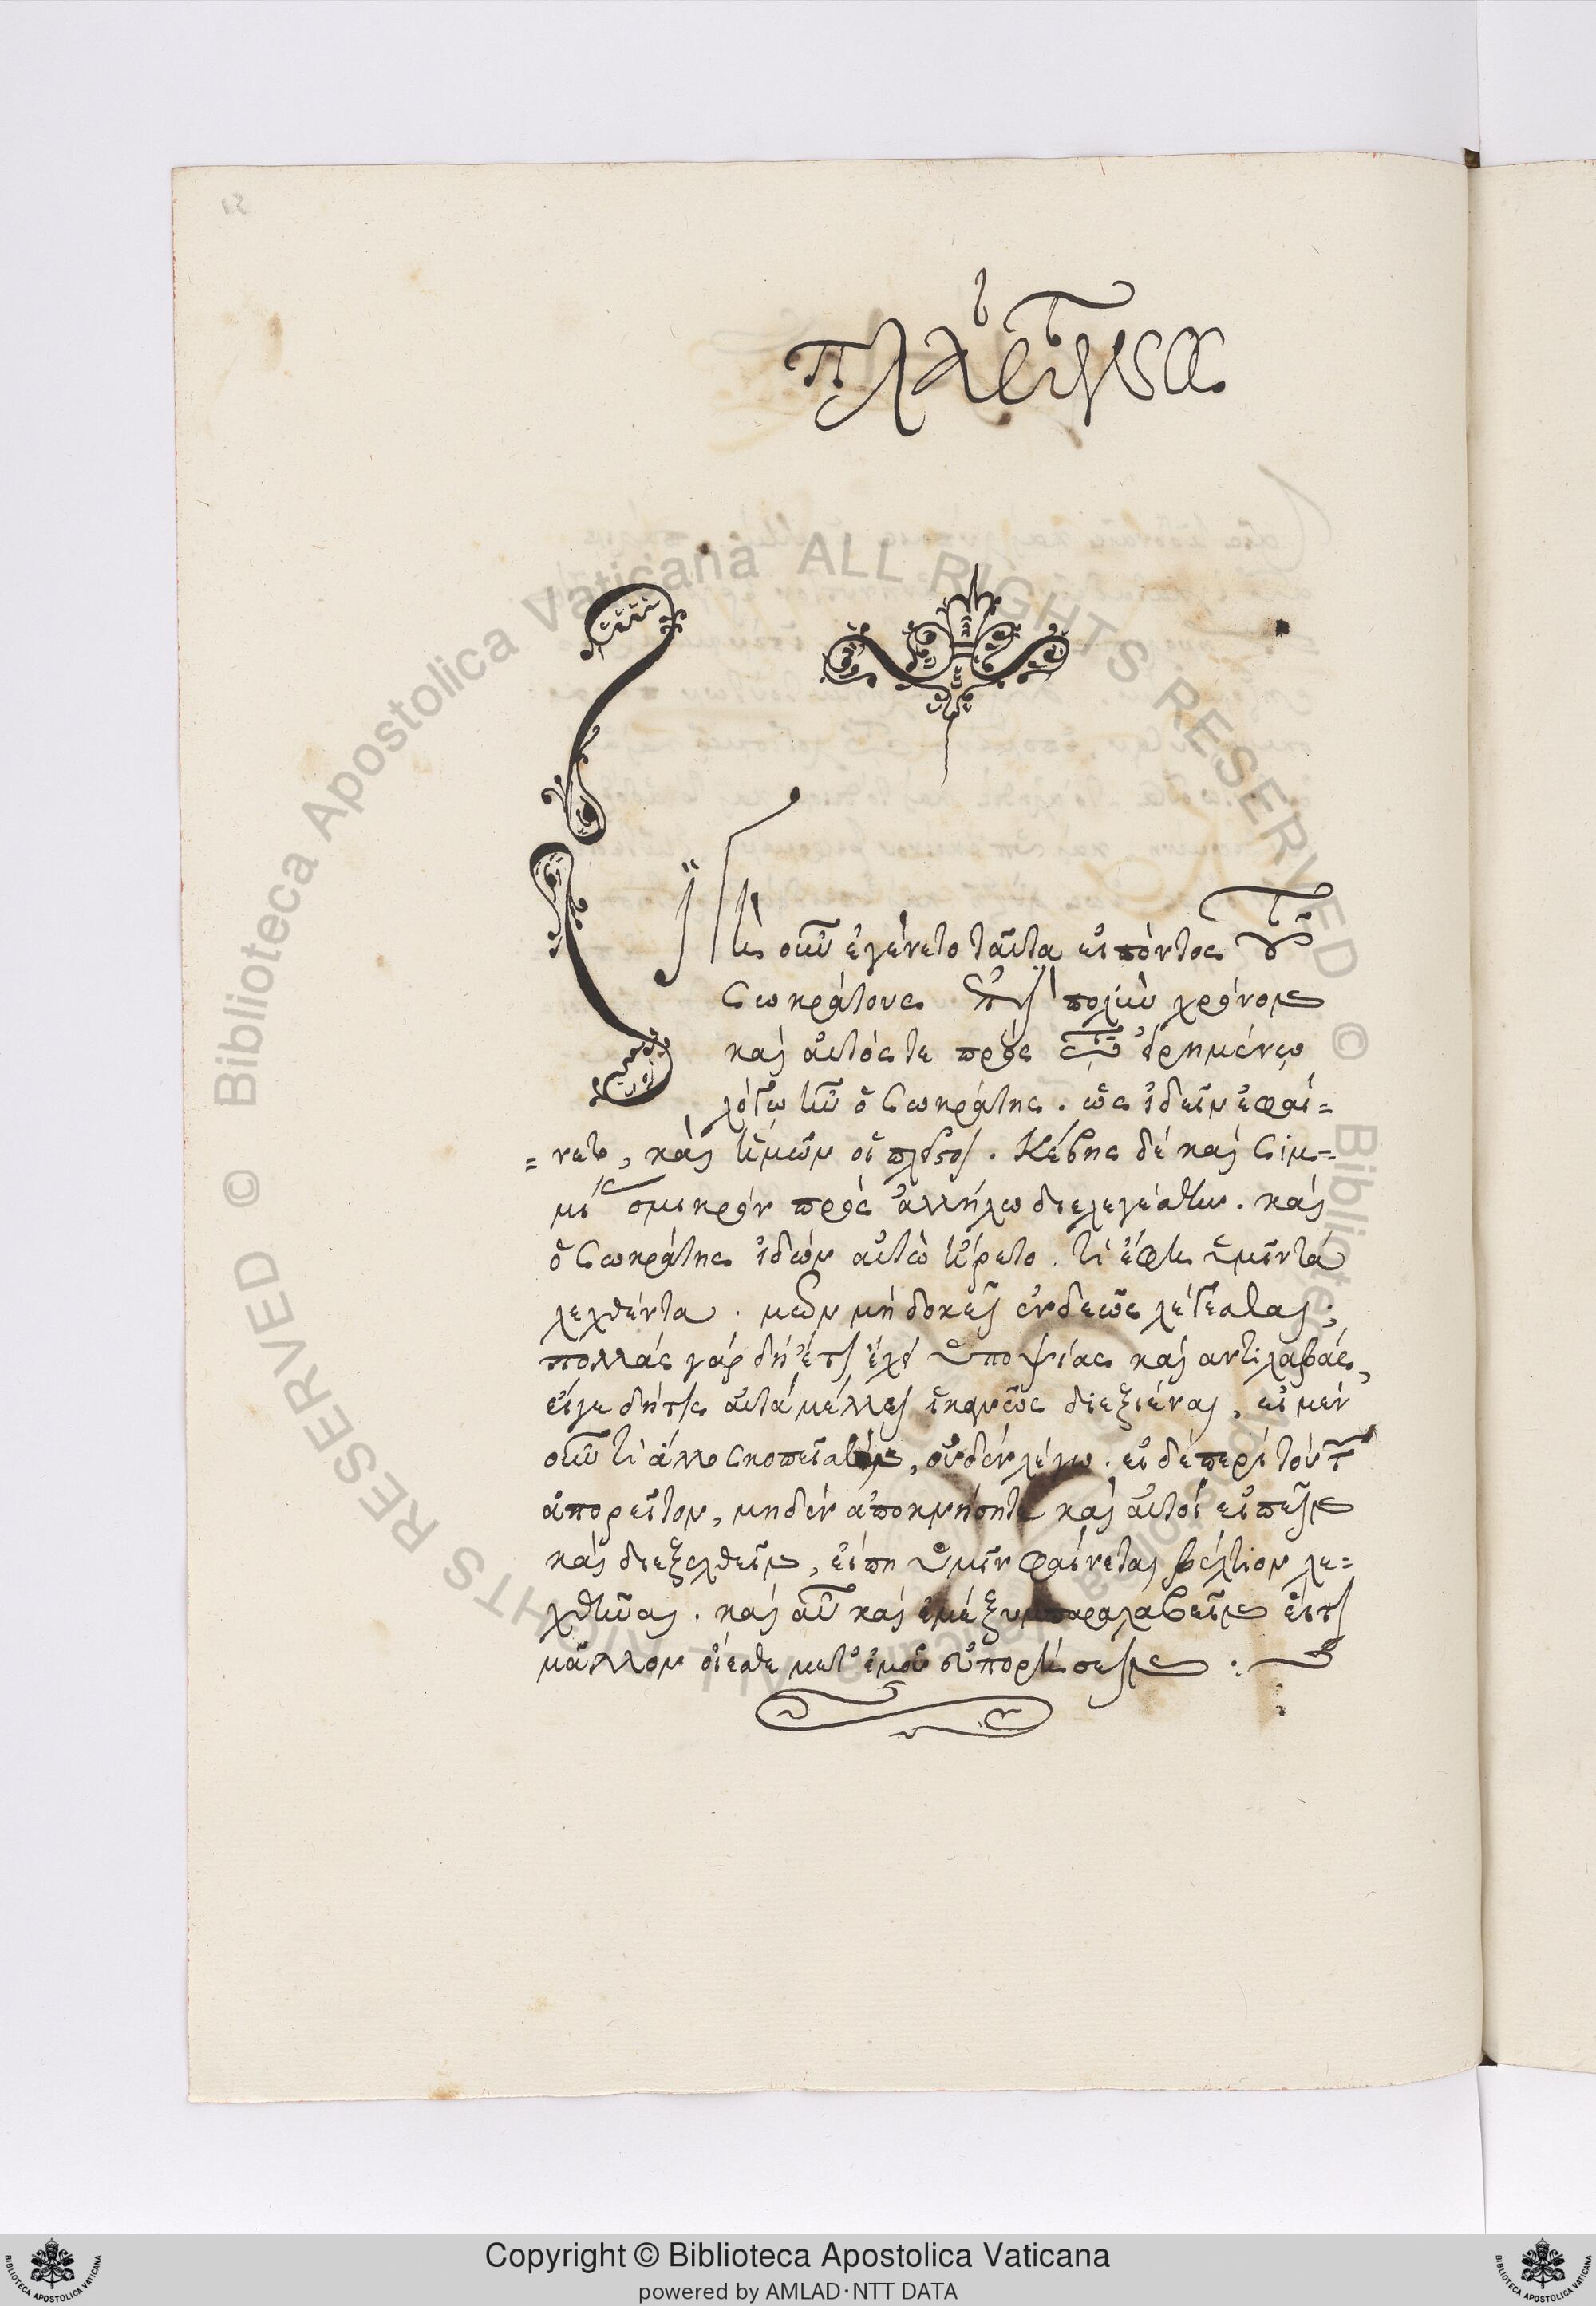 πλάτωνος
Σιγὴ οὖν ἐγένετο ταῦτα εἰπόντος τοῦ
Σωκράτους ἐπὶ πολὺν χρόνον
καὶ αὐτός τε πρὸς τῷ εἰρημένῳ
λόγῳ ἦν ὁ Σωκράτης . ὡς ἰδεῖν ἐφαί=
=νετο, καὶ ἡμῶν οἱ πλεῖστοι . Κέβης δὲ καὶ Σιμ=
μίας σμικρὸν πρὸς ἀλλήλω διελεγέσθην . καὶ
ὁ Σωκράτης ἰδὼν αὐτὼ ἤρετο . τί ἔφη ὑμῖν τὰ
λεχθέντα . μῶν μὴ δοκεῖ ἐνδεῶς λέγεσθαι ;
πολλὰς γὰρ δὴ ἔτι ἔχει ὑποψίας καὶ αντιλαβάς,
εἴγε δή τις αὐτὰ μέλλει ἱκανῶς διεξιέναι , εἰ μὲν
οὖν τὶ ἄλλο σκοπεῖσθον, οὐδὲν λέγω . εἰ δὲ περὶ τούτων
ἀπορεῖτον, μηδὲν ἀποκνήσητε καὶ αὐτοὶ εἰπεῖν
καὶ διεξελθεῖν, εἴπη ὑμῖν φαίνεται βέλτιον λε=
χθῆναι . καὶ αὖ καὶ ἐμὲ ξυμπαραλαβεῖν εἴ τι
μᾶλλον οἴεσθε μετ' ἐμοῦ εὐπορήσειν :
Copyright © Biblioteca Apostolica Vaticana
powered by AMLAD·NTT DATA
© Biblioteca Apostolica Vaticana ALL RIGHTS RESERVED